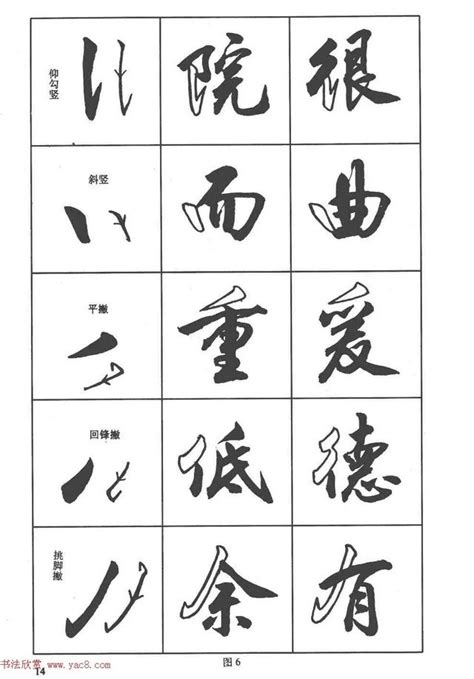 仰勾竖 院 很
斜竖 而 曲
平撇 重 爰
回锋撇 低 德
挑脚撇 余 有
图 6
14
书法欣赏 www.yac8.com